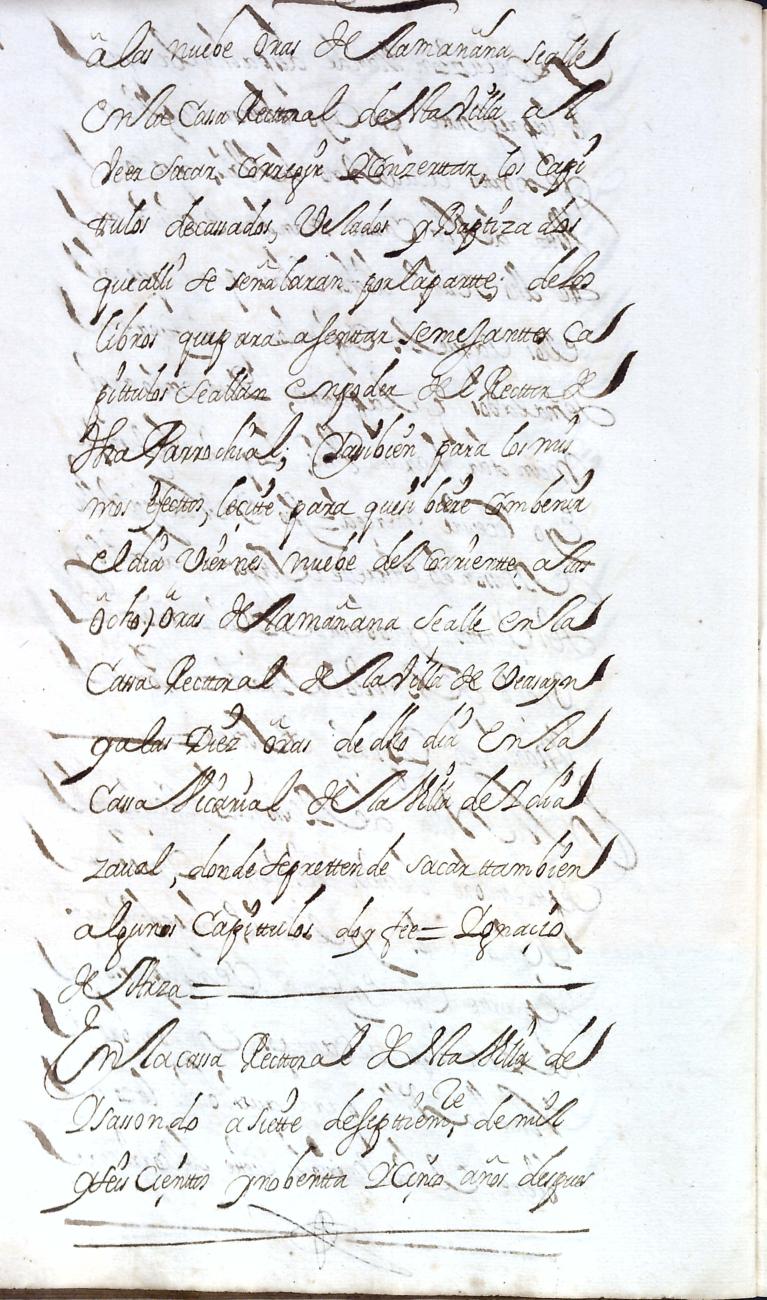 a las nuebe oras de la mañana se alle
en la Cassa Recttoral de Vta Villa a el
veer sacar, Correjir y Conzerttar, los Capi
ttulos de cassados, Velados y Baptizados
que alli se señalaran por la partte, de los
libros que para asenttar semejanttes Ca
pittulos se allan en poder de el Recttor de
dha Parrochial; y tambien para los mis
mos efecttos, le citte para que si biere combenir
el dia Viernes nuebe del corriente, a las
ocho oras de la mañana se alle en la
Cassa Recttoral de la Villa de Veasayn
y a las Diez oras de dho dia en la
Cassa Vicarial de la Villa de Ydia
zaual, donde se prettende sacar ttambien
algunos Capittulos doy fee = Ygnacio
de Arza =
En la cassa Recttoral de Vta Villa de
Ysassondo a siette de septtiem.re de mil
y seis Cienttos y nobentta y Cinco años despues